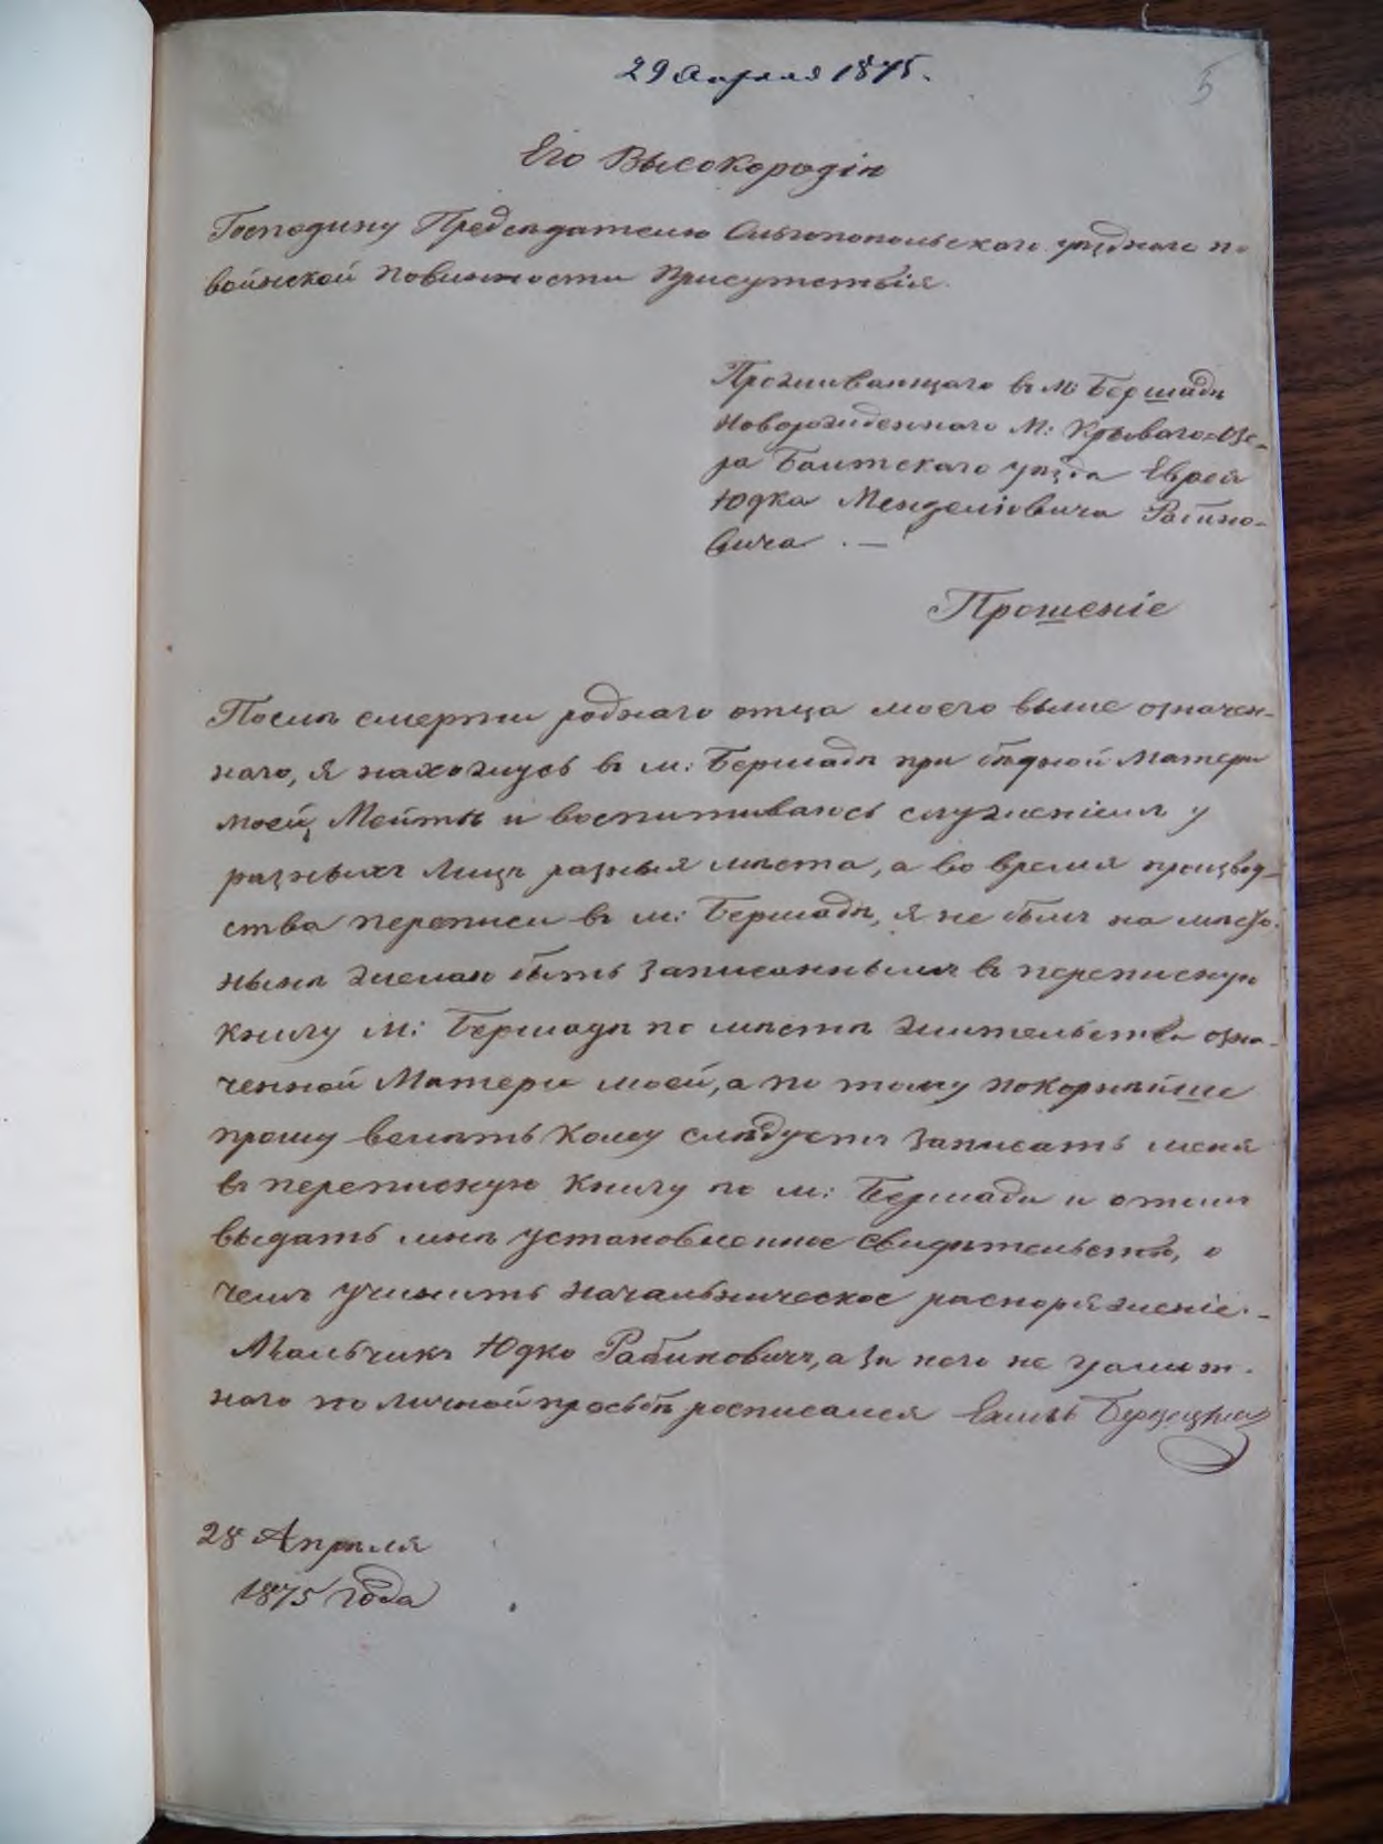 29 Апреля 1875.
5
Его Высокородію
Господину Предсѣдателю Ольгопольскаго уѣзднаго по
воинской повинности Присутствія.
Проживающаго въ м: Бершадѣ
новорожденнаго м: Криваго-Озе-
ра Балтскаго уѣзда Еврея
Юдка Менделіовича Рабино-
вича. —
Прошеніе
Послѣ смерти роднаго отца моего выше означен-
наго, я нахожусь въ м: Бершадѣ при бѣдной матери
моей, Мейтѣ и воспитываюсь служеніемъ у
разныхъ лицъ разныя мѣста, а во время производ-
ства переписи въ м: Бершадѣ, я не былъ на мѣсто.
нынѣ желаю быть записаннымъ въ переписную
книгу м: Бершадѣ по мѣстѣ жительства озна-
ченной Матери моей, а по тому покорнѣйше
прошу велѣть кому слѣдуетъ записать меня
въ переписную книгу по м: Бершади и о томъ
выдать мнѣ установленное свидѣтельство, о
чемъ учинить начальническое распоряженіе. —
Мальчикъ Юдко Рабиновичъ, а за него не грамот-
наго по личной просьбѣ росписался
28 Апрѣля
1875 года